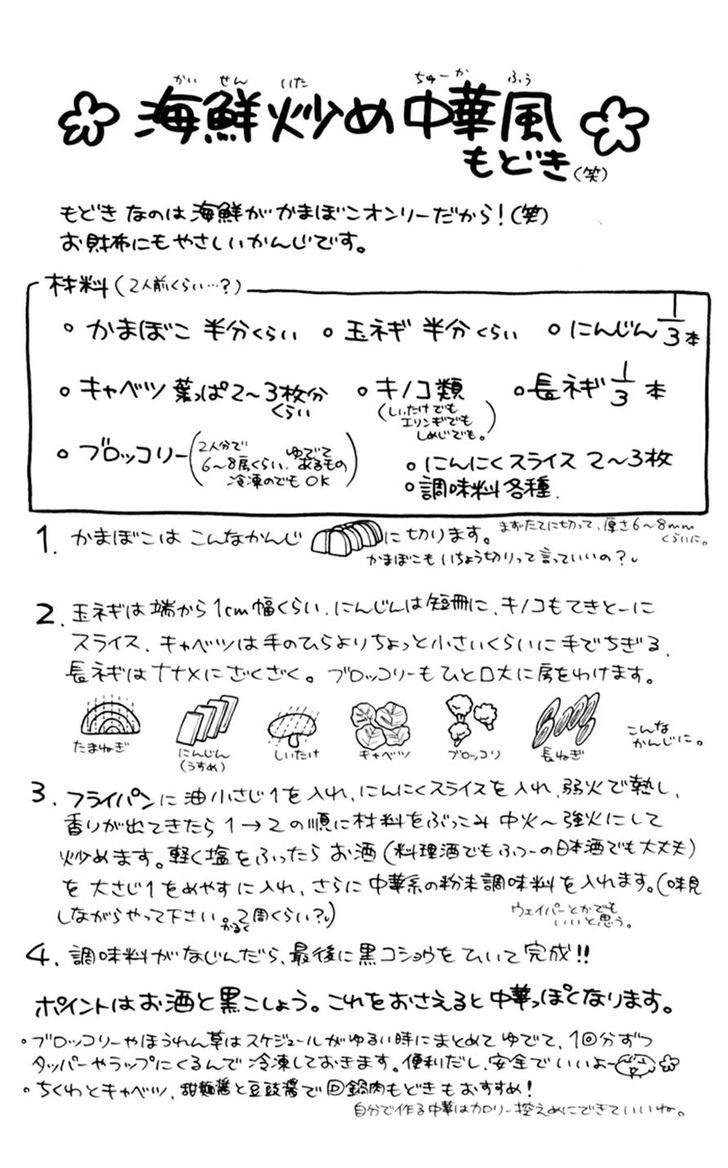 かい せん いた ちゅーか ふう
海鮮炒め中華風
もどき(笑)
もどきなのは海鮮がかまぼこオンリーだから!(笑)
お財布にもやさしいかんじです。
材料(2人前くらい…?)
◦ かまぼこ 半分くらい ◦ 玉ネギ 半分くらい ◦ にんじん 1/3本
◦ キャベツ 葉っぱ2〜3枚分くらい ◦ キノコ類 ◦ 長ネギ 1/3 本
(しいたけでも
エリンギでも
しめじでも。)
◦ ブロッコリー(2人分で
6〜8房くらい。ゆでてあるもの
冷凍のでもOK)
◦ にんにくスライス 2〜3枚
◦ 調味料各種.
1. かまぼこは こんなかんじ に切ります。まずたてに切って、厚さ6〜8mm
くらいに。
かまぼこもいちょう切りって言っていいの?
2. 玉ネギは端から1cm幅くらい、にんじんは短冊に、キノコもてきとーに
スライス、キャベツは手のひらよりちょっと小さいくらいに手でちぎる、
長ネギはナナメにざくざく。ブロッコリーもひと口大に房をわけます。
たまねぎ にんじん しいたけ キャベツ ブロッコリ 長ねぎ こんな
(うすめ) かんじに。
3. フライパンに油小さじ1を入れ、にんにくスライスを入れ、弱火で熱し、
香りが出てきたら 1→2の順に材料をぶっこみ 中火〜強火にして
炒めます。軽く塩をふったら お酒(料理酒でもふつーの日本酒でも大丈夫)
を 大さじ1をめやすに入れ、さらに 中華系の粉末調味料を入れます。(味見
しながらやって下さい。かるく2周くらい?)
ウェイパーとかでも
いいと思う。
4. 調味料がなじんだら、最後に黒コショウをひいて完成!!
ポイントはお酒と黒こしょう。これをおさえると中華っぽくなります。
◦ブロッコリーやほうれん草はスケジュールがゆるい時にまとめてゆでて、1回分ずつ
タッパーやラップにくるんで冷凍しておきます。便利だし、安全でいいよー
◦ちくわとキャベツ、甜麺醤と豆豉醤で回鍋肉もどきもおすすめ!
自分で作る中華はカロリー控えめにできていいね。